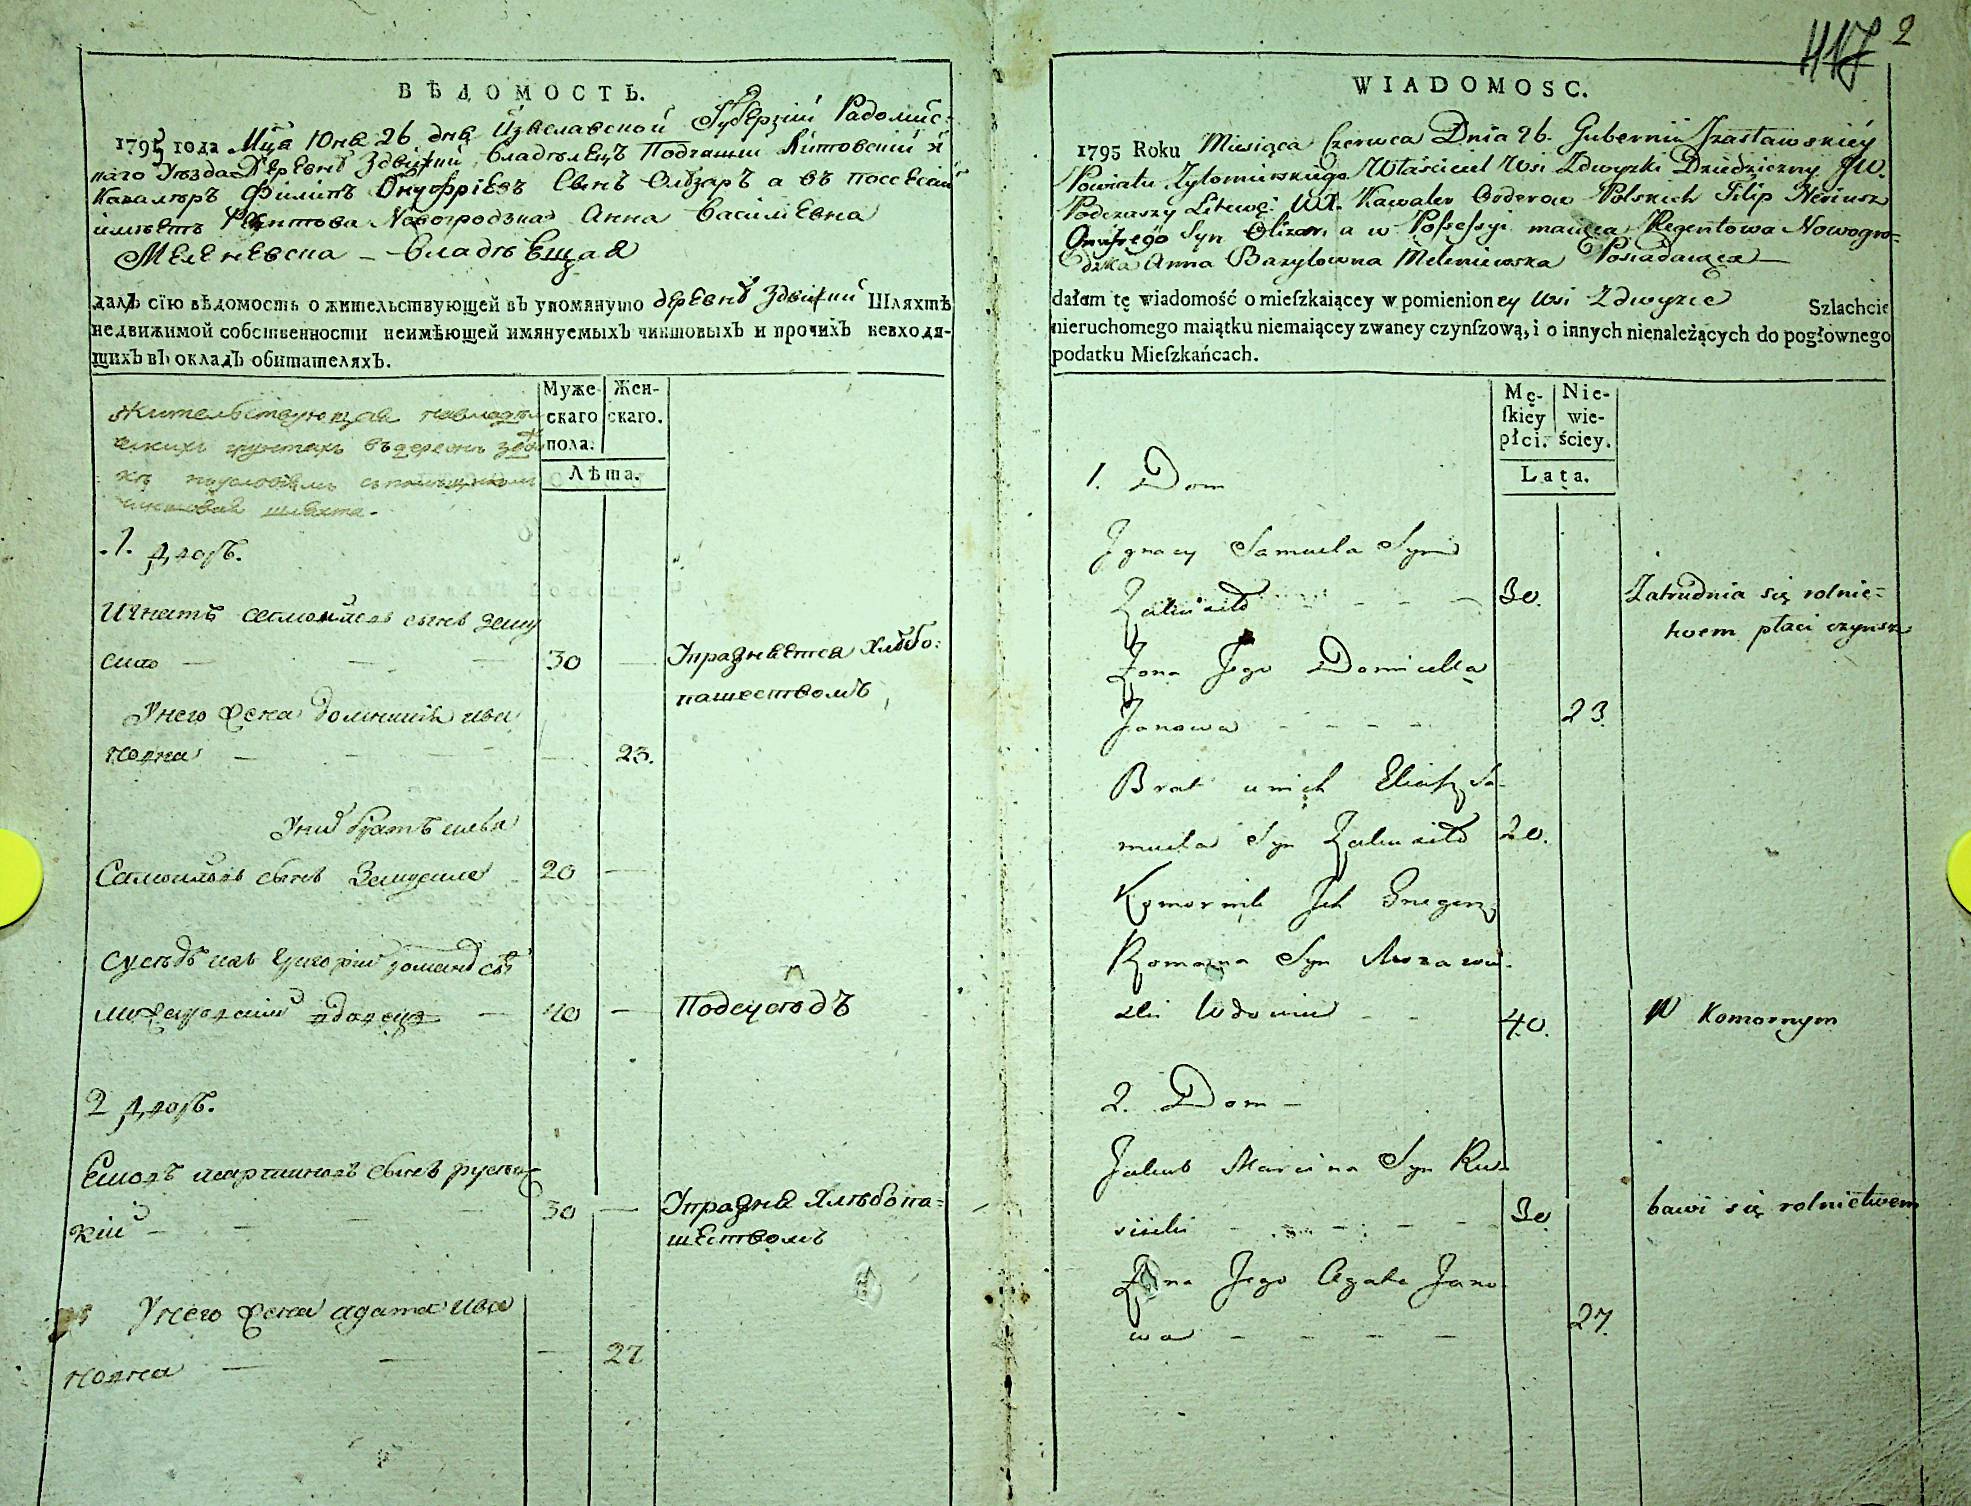 ВѢДОМОСТЬ.
1795 года Мца Июня 26 дня Изяславской Губернии Радомис-
наго Уезда Деревне Здвижки Владелецъ Подчаший Литовский и
Кавалеръ Филипъ Онуфриевъ Сынъ Олизаръ а въ поссесии
имеетъ Новогродзкая Анна Василевна
Меленевска – Владеющая
далъ сїю вѣдомость о жительствующей въ упомянуто деревне Здвижки Шляхтѣ
недвижимой собственности неимѣющей имянуемыхъ чиншовыхъ и прочихъ невходя-
щихъ въ окладъ обитателяхъ.
Муже- скаго пола.
Жен- скаго.
Лѣта.
Жительствующая
грунтахъ въ деревне
чиншовая шляхта.
.1. дворъ.
Игнатъ Самойловъ сынъ Залу
ско — — — 30 — Упражняется хлебо:
пашествомъ
У него жена Доминика Ива
новна — — — 23.
У них братъ илья
Самойловъ сынъ Залуско 20 —
сусѣдъ ихъ Григорий романовъ сынъ
вдовецъ — 40 — Подсуседъ
2 дворъ.
Яковъ мартиновъ сынъ русец
кий — — — 30 — Упражня хлебопа=
шествомъ
У него жена агата Ива
новна — — — 27
417 2
WIADOMOSC.
1795 Roku Miesiąca Czerwca Dnia 26. Gubernii Izasławskiey
Powiatu Żytomirskiego Właściciel Wsi Zdwyżki Dziedziczny JW.
Podczaszy Litewś: Kawaler Orderow Polskich Filip Neriusz
Onufrego Syn Olizar, a w Possessyi maiąca Regentowa Nowogro=
dzka Anna Bazylowna Meleniewska Posiadaiąca —
dałam tę wiadomość o mieſzkaiącey w pomienioney Wsi Zdwyżce Szlachcie
nieruchomego maiątku niemaiącey zwaney czynſzową, i o innych nienależących do pogłownego
podatku Mieſzkańcach.
Mę- ſkiey płci.
Nie- wie- ściey.
Lata.
1. Dom
Jgnacy Samuela Syn
Załuskо - - - - 30. Zatrudnia się rolnic=
twem płaci czynsz
Zona Jego Domicella
Janowa - - - - 23.
Brat u nich Eliasz Sa-
muela Syn Załusko 20.
Komornik Ich Gregorz
Romana Syn
ski Wdowiec - - 40. W Komornym
2. Dom —
Jakub Marcina Syn Ru-
siecki - - - - 30. bawi się rolnictwem
Zona Jego Agata Jano-
wa - - - - 27.